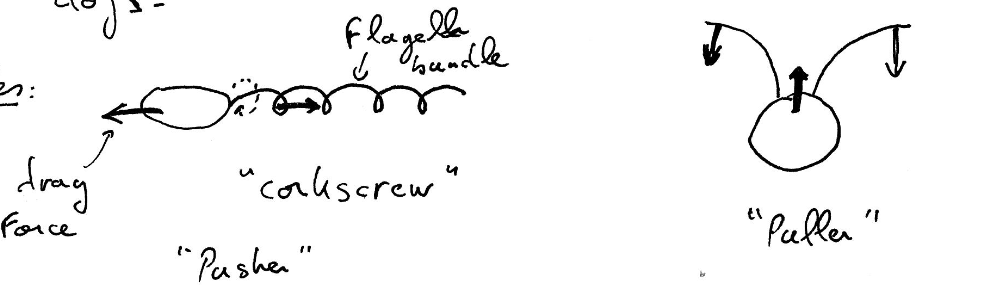 Flagella
bundle
drag
Force
"corkscrew"
"Pusher"
"Puller"